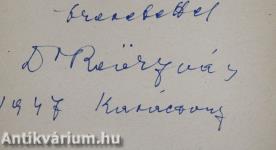 szeretettel
Dr
1947 Karácsony
Antikvárium.hu